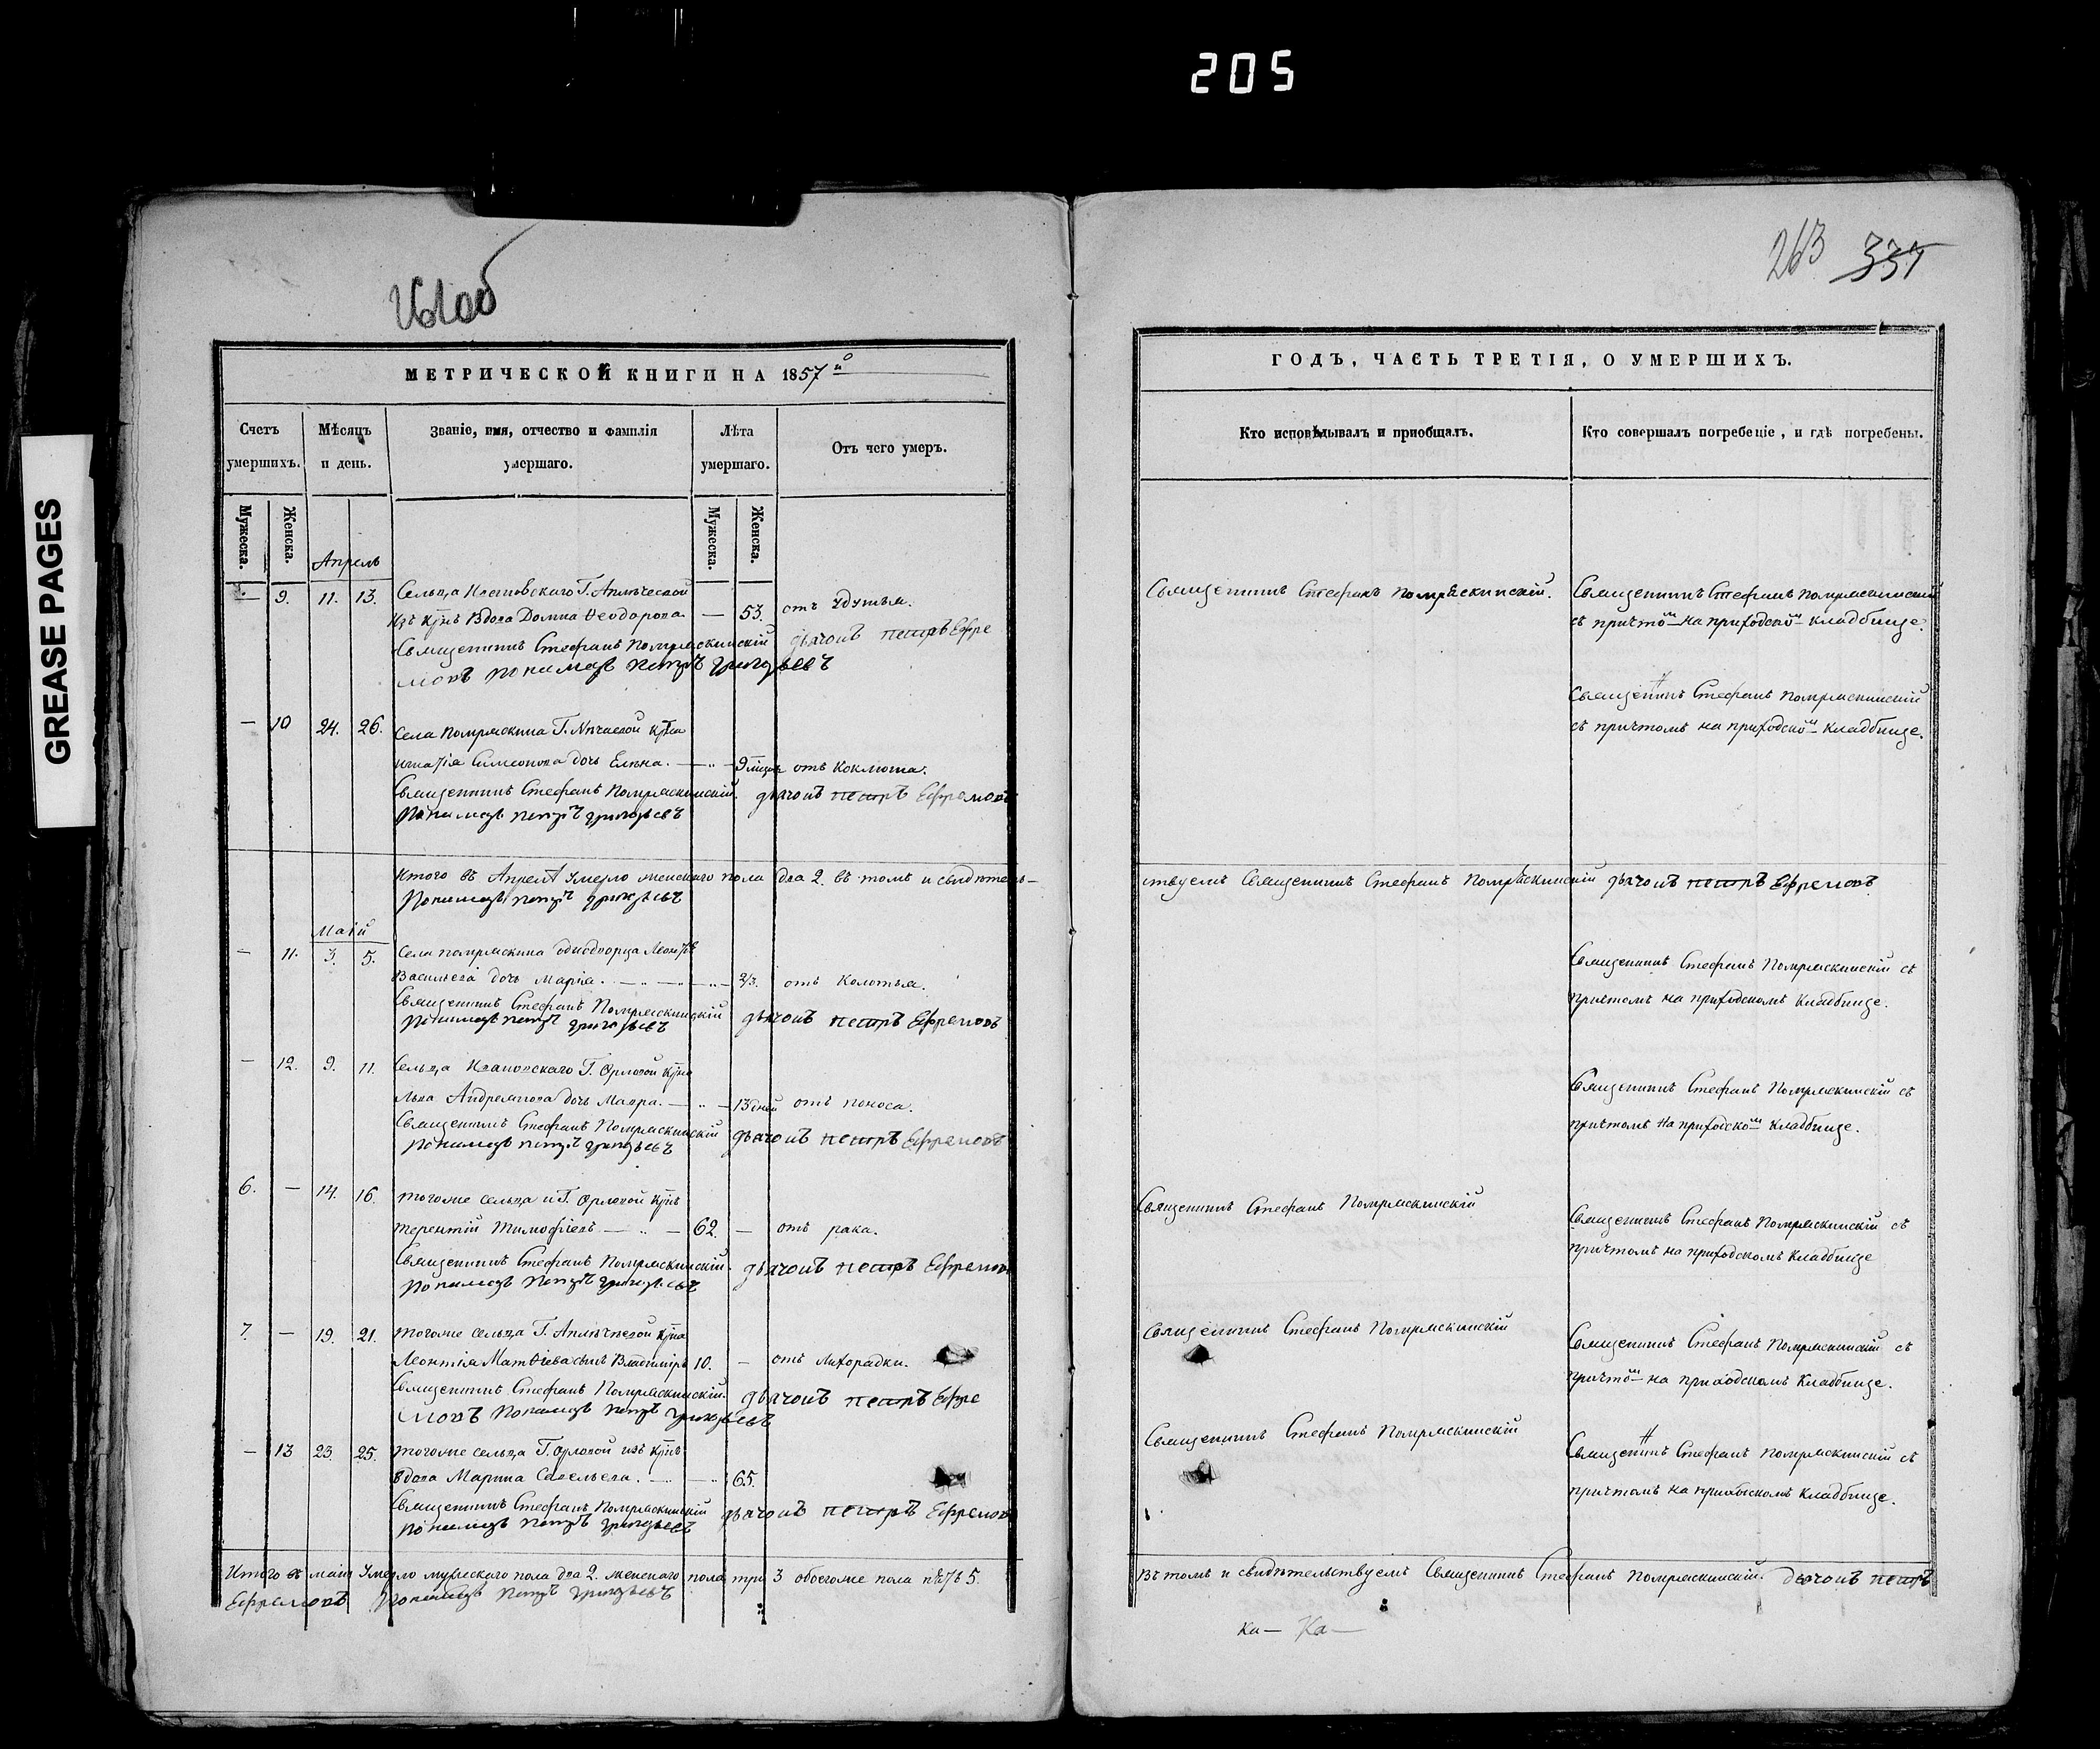 205
GREASE PAGES
263 337
МЕТРИЧЕСКОЙ КНИГИ НА 1857й
Счетъ умершихъ.
Мѣсяцъ и день.
Званіе, имя, отчество и фамилія умершаго.
Лѣта умершаго.
Отъ чего умеръ.
Мужеска.
Женска.
Мужеска.
Женска.
Апрель
— 9. 11. 13. Сельца Г.
изъ крнъ вдова Домна Ѳеодорова — 53. отъ удушья.
Священникъ Стефанъ Помряскинскій дьячокъ Петръ Ефре
мовъ пономарь Петръ Григорьевъ
— 10 24. 26. Села Помряскина Г. крна
Игнатія Симеонова дочь Елена. — „ — 9 отъ Коклюша.
Священникъ Стефанъ Помряскинскій. дьячокъ Петръ Ефремовъ
Пономарь Петръ Григорьевъ
Итого въ Апрелѣ умерло женскаго пола два 2. въ томъ и свидѣтель-
Пономарь Петръ Григорьевъ
Маій
— 11. 3. 5. Села Помряскина однодворца
Васильева дочь Марія. — „ — „ — 2/3. отъ Колотья.
Священникъ Стефанъ Помряскинскій дьячокъ Петръ Ефремовъ
Пономарь Петръ Григорьевъ
— 12. 9. 11. Сельца Ивановскаго Г. Орловой крна
Льва дочь Мавра. — „ — 13 дней отъ поноса.
Священникъ Стефанъ Помряскинскій дьячокъ Петръ Ефремовъ
Пономарь Петръ Григорьевъ
6. — 14. 16. Тогоже сельца и Г. Орловой крнъ
Терентій Тимофѣевъ — „ — 62. — отъ рака.
Священникъ Стефанъ Помряскинскій. дьячокъ Петръ Ефремовъ
Пономарь Петръ Григорьевъ
7. — 19. 21. Тогоже сельца Г. крна
Леонтія Матѳіева сынъ Владиміръ 10. — отъ Лихорадки.
Священникъ Стефанъ Помряскинскій. дьячокъ Петръ Ефре
мовъ Пономарь Петръ Григорьевъ
— 13 23. 25. Тогоже сельца Г. Орловой изъ крнъ
вдова Марина Савельева. — „ — „ 65.
Священникъ Стефанъ Помряскинскій дьячокъ Петръ Ефремовъ
Пономарь Петръ Григорьевъ
Итого въ маіи умерло мужескаго пола два 2. женскаго пола три 3 обоегоже пола пять 5.
Ефремовъ Пономарь Петръ Григорьевъ
ГОДЪ, ЧАСТЬ ТРЕТІЯ, О УМЕРШИХЪ.
Кто исповѣдывалъ и приобщалъ.
Кто совершалъ погребеніе, и гдѣ погребены.
Священникъ Стефанъ Помряскинскій. Священникъ Стефанъ Помряскинскій
съ причтомъ на приходскомъ кладбище.
Священникъ Стефанъ Помряскинскій
съ причтомъ на приходскомъ кладбище.
ствуемъ Священникъ Стефанъ Помряскинскій дьячокъ Петръ Ефремовъ
Священникъ Стефанъ Помряскинскій съ
причтомъ на приходскомъ кладбище.
Священникъ Стефанъ Помряскинскій съ
причтомъ на приходскомъ кладбище.
Священникъ Стефанъ Помряскинскій
Священникъ Стефанъ Помряскинскій съ
причтомъ на приходскомъ кладбище
Священникъ Стефанъ Помряскинскій
Священникъ Стефанъ Помряскинскій съ
причтомъ на приходскомъ кладбище.
Священникъ Стефанъ Помряскинскій
Священникъ Стефанъ Помряскинскій съ
причтомъ на приходскомъ кладбище.
Въ томъ и свидѣтельствуемъ Священникъ Стефанъ Помряскинскій. дьячокъ Петръ
ка— Ка—